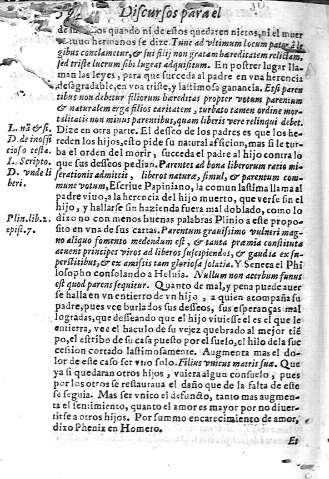 Discursos para el
de                quando ni de estos queden nietos, ni el muer
to tuuo hermanos se dize. Tunc ad vltimum locum patet
gibus conclamatur, & sui filij non gratam hæreditatem relictam,
sed triste lucrum sibi lugeat adquisitum. En postrer lugar lla-
man las leyes, para que succeda al padre en vna herencia
desagradable, en vna triste, y lastimosa ganancia. Etsi paren
tibus non debetur filiorum hæreditas propter votum parentum
& naturalem erga filios caritatem, turbato tamen ordine mor-
talitatis non minus parentibus, quam liberis vere relinqui debet.
L. nā & si. Dize en otra parte. El desseo de los padres es que los he-
D. de inoffi reden los hijos, esto pide su natural aficion, mas si le tur-
cioso testa. ba el orden del morir, succeda el padre al hijo contra lo
L. Scripto. que sus desseos pedian. Parentes ad bona liberorum ratio mi-
D. vnde li serationis admittit, liberos naturæ, simul, & parentum com-
beri. mune votum, Escriue Papiniano, la comun lastima llama al
padre viuo, a la herencia del hijo muerto, que verse sin el
hijo, y hallarse sin hazienda fuera mal doblado, como lo
Plin. lib. 2. dixo no con menos buenas palabras Plinio a este propo-
epist. 7. sito en vna de sus cartas. Parentum grauissimo vulneri mag-
no aliquo fomento medendum est, & tanta præmia constituta
acuent principes viros ad liberos suscipiendos, & gaudia ex su-
perstitibus, & ex amissis tam gloriosa solatia. Y Seneca el Phi
losopho consolando a Heluia. Nullum non acerbum funus
est quod parens sequitur. Quanto de mal, y pena puede auer
se halla en vn entierro de vn hijo, a quien acompaña su
padre, pues ve burlados sus desseos, sus esperanças mal
logradas, que desseando que el hijo viuiesse el es el que le
entierra, vee el baculo de su vejez quebrado al mejor tié
po, el estribo de su casa puesto por el suelo, el hilo de la suc
cession cortado lastimosamente. Augmenta mas el do-
lor de este caso ser vno solo. Filius vnicus matris suæ. Que
ya si quedaran otros hijos, vuiera algun consuelo, pues
por los otros se restauraua el daño que de la falta de este
se seguia. Mas ser vnico el defuncto, tanto mas augmen-
ta el sentimiento, quanto el amor es mayor por no diuer-
tirse a otros hijos. Por summo encarecimiento de amor,
dixo Phenix en Homero.
Et